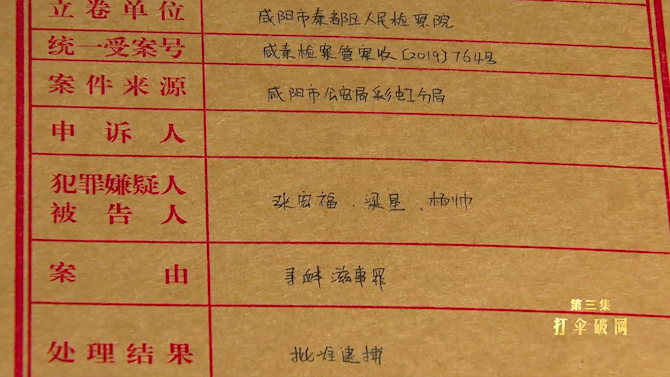 立卷单位 咸阳市秦都区人民检察院
统一受案号 咸秦检案管案收[2019]764号
案件来源 咸阳市公安局彩虹分局
申诉人
犯罪嫌疑人
被告人 张宏福、梁星、杨帅
案由 寻衅滋事罪
第三集
打伞破网
处理结果 批准逮捕